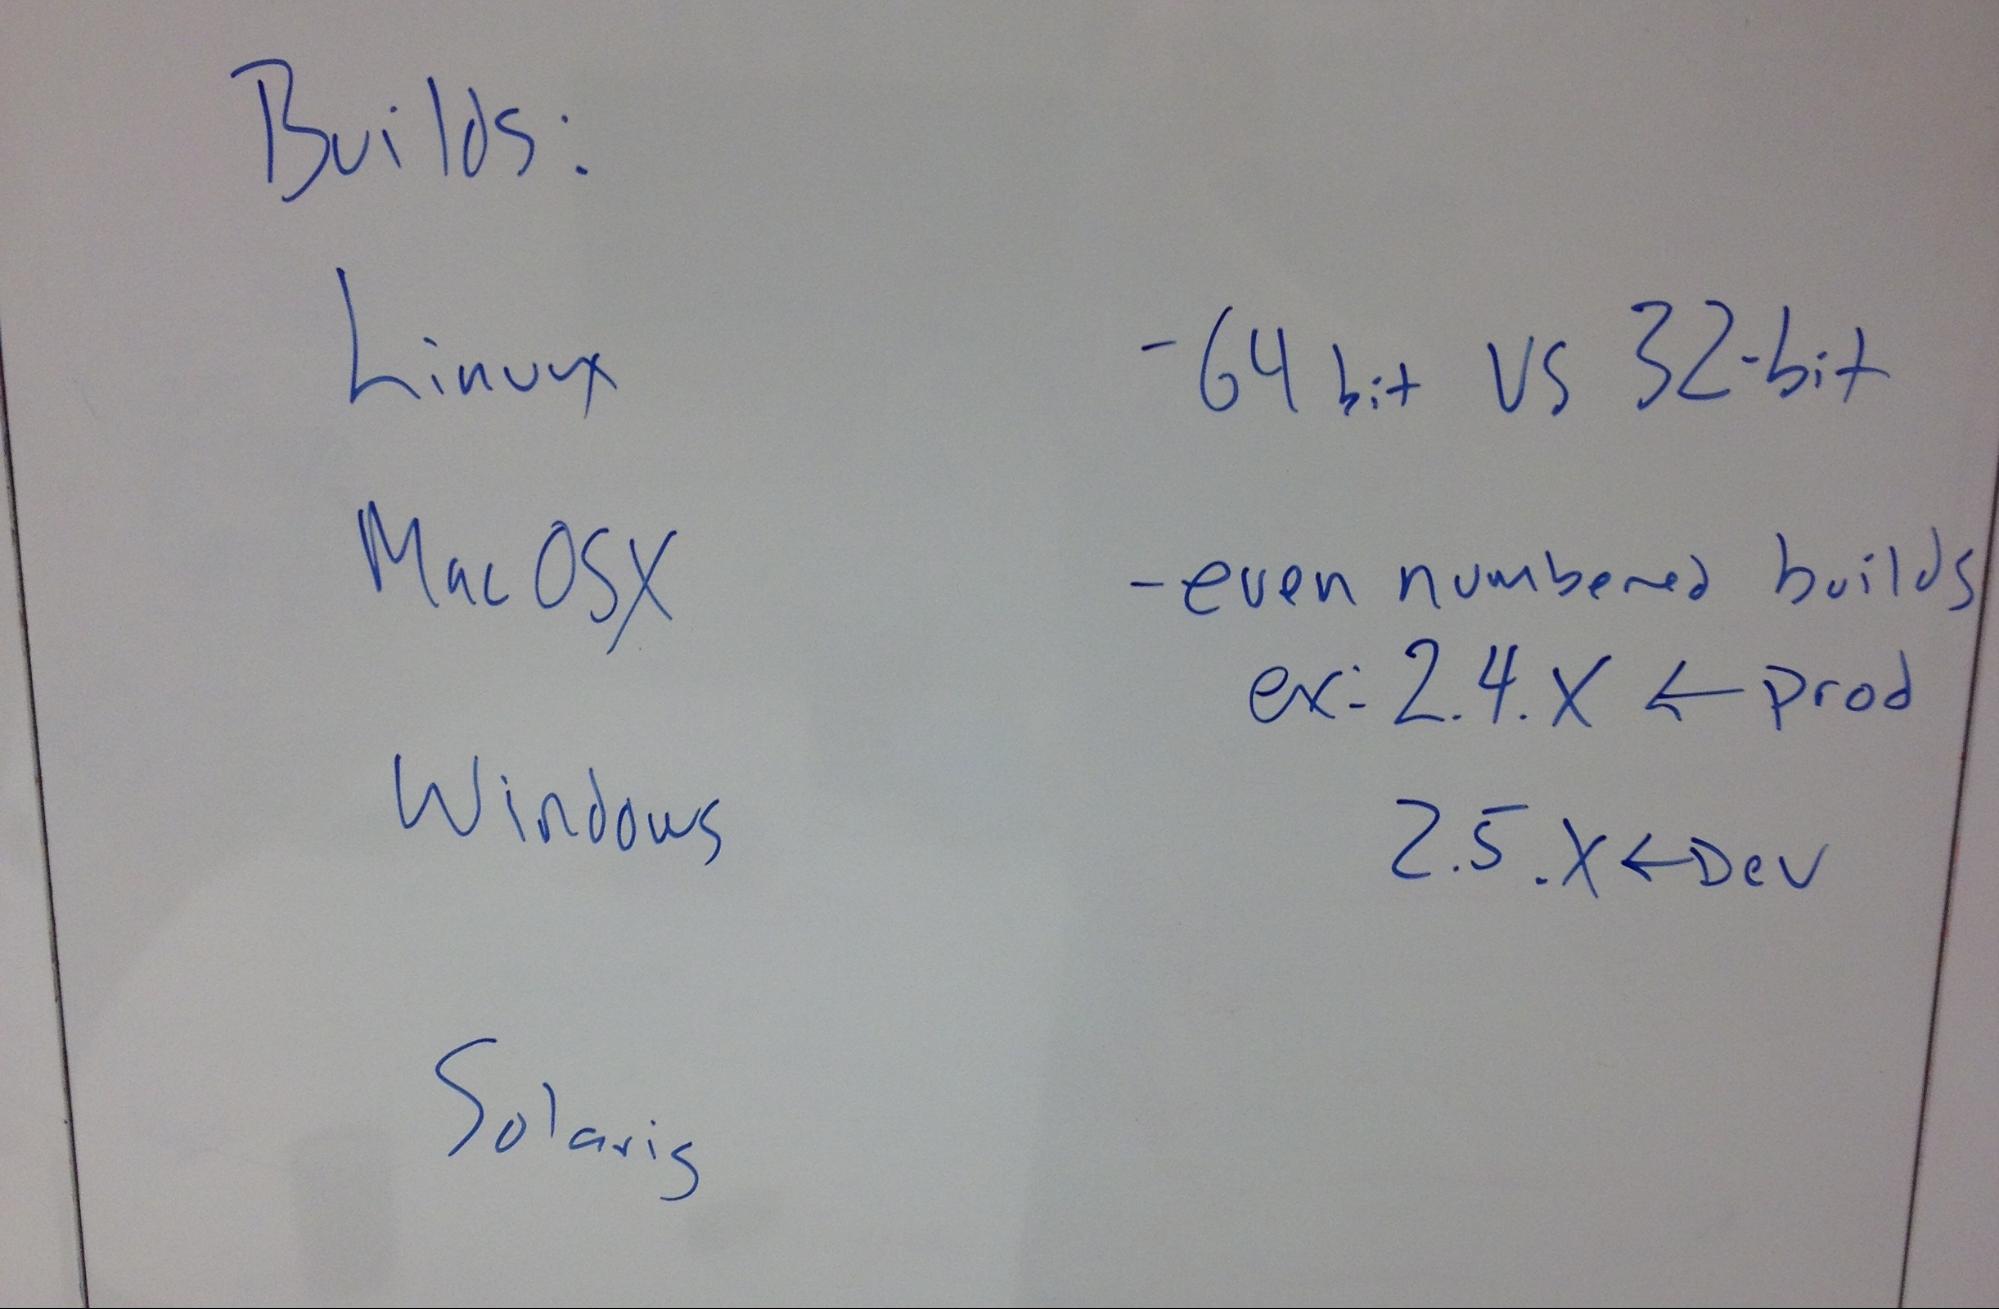 Builds:
Linux
Mac OSX
Windows
Solaris
- 64 bit vs 32-bit
- even numbered builds
ex: 2.4.x ← prod
2.5.x ← Dev